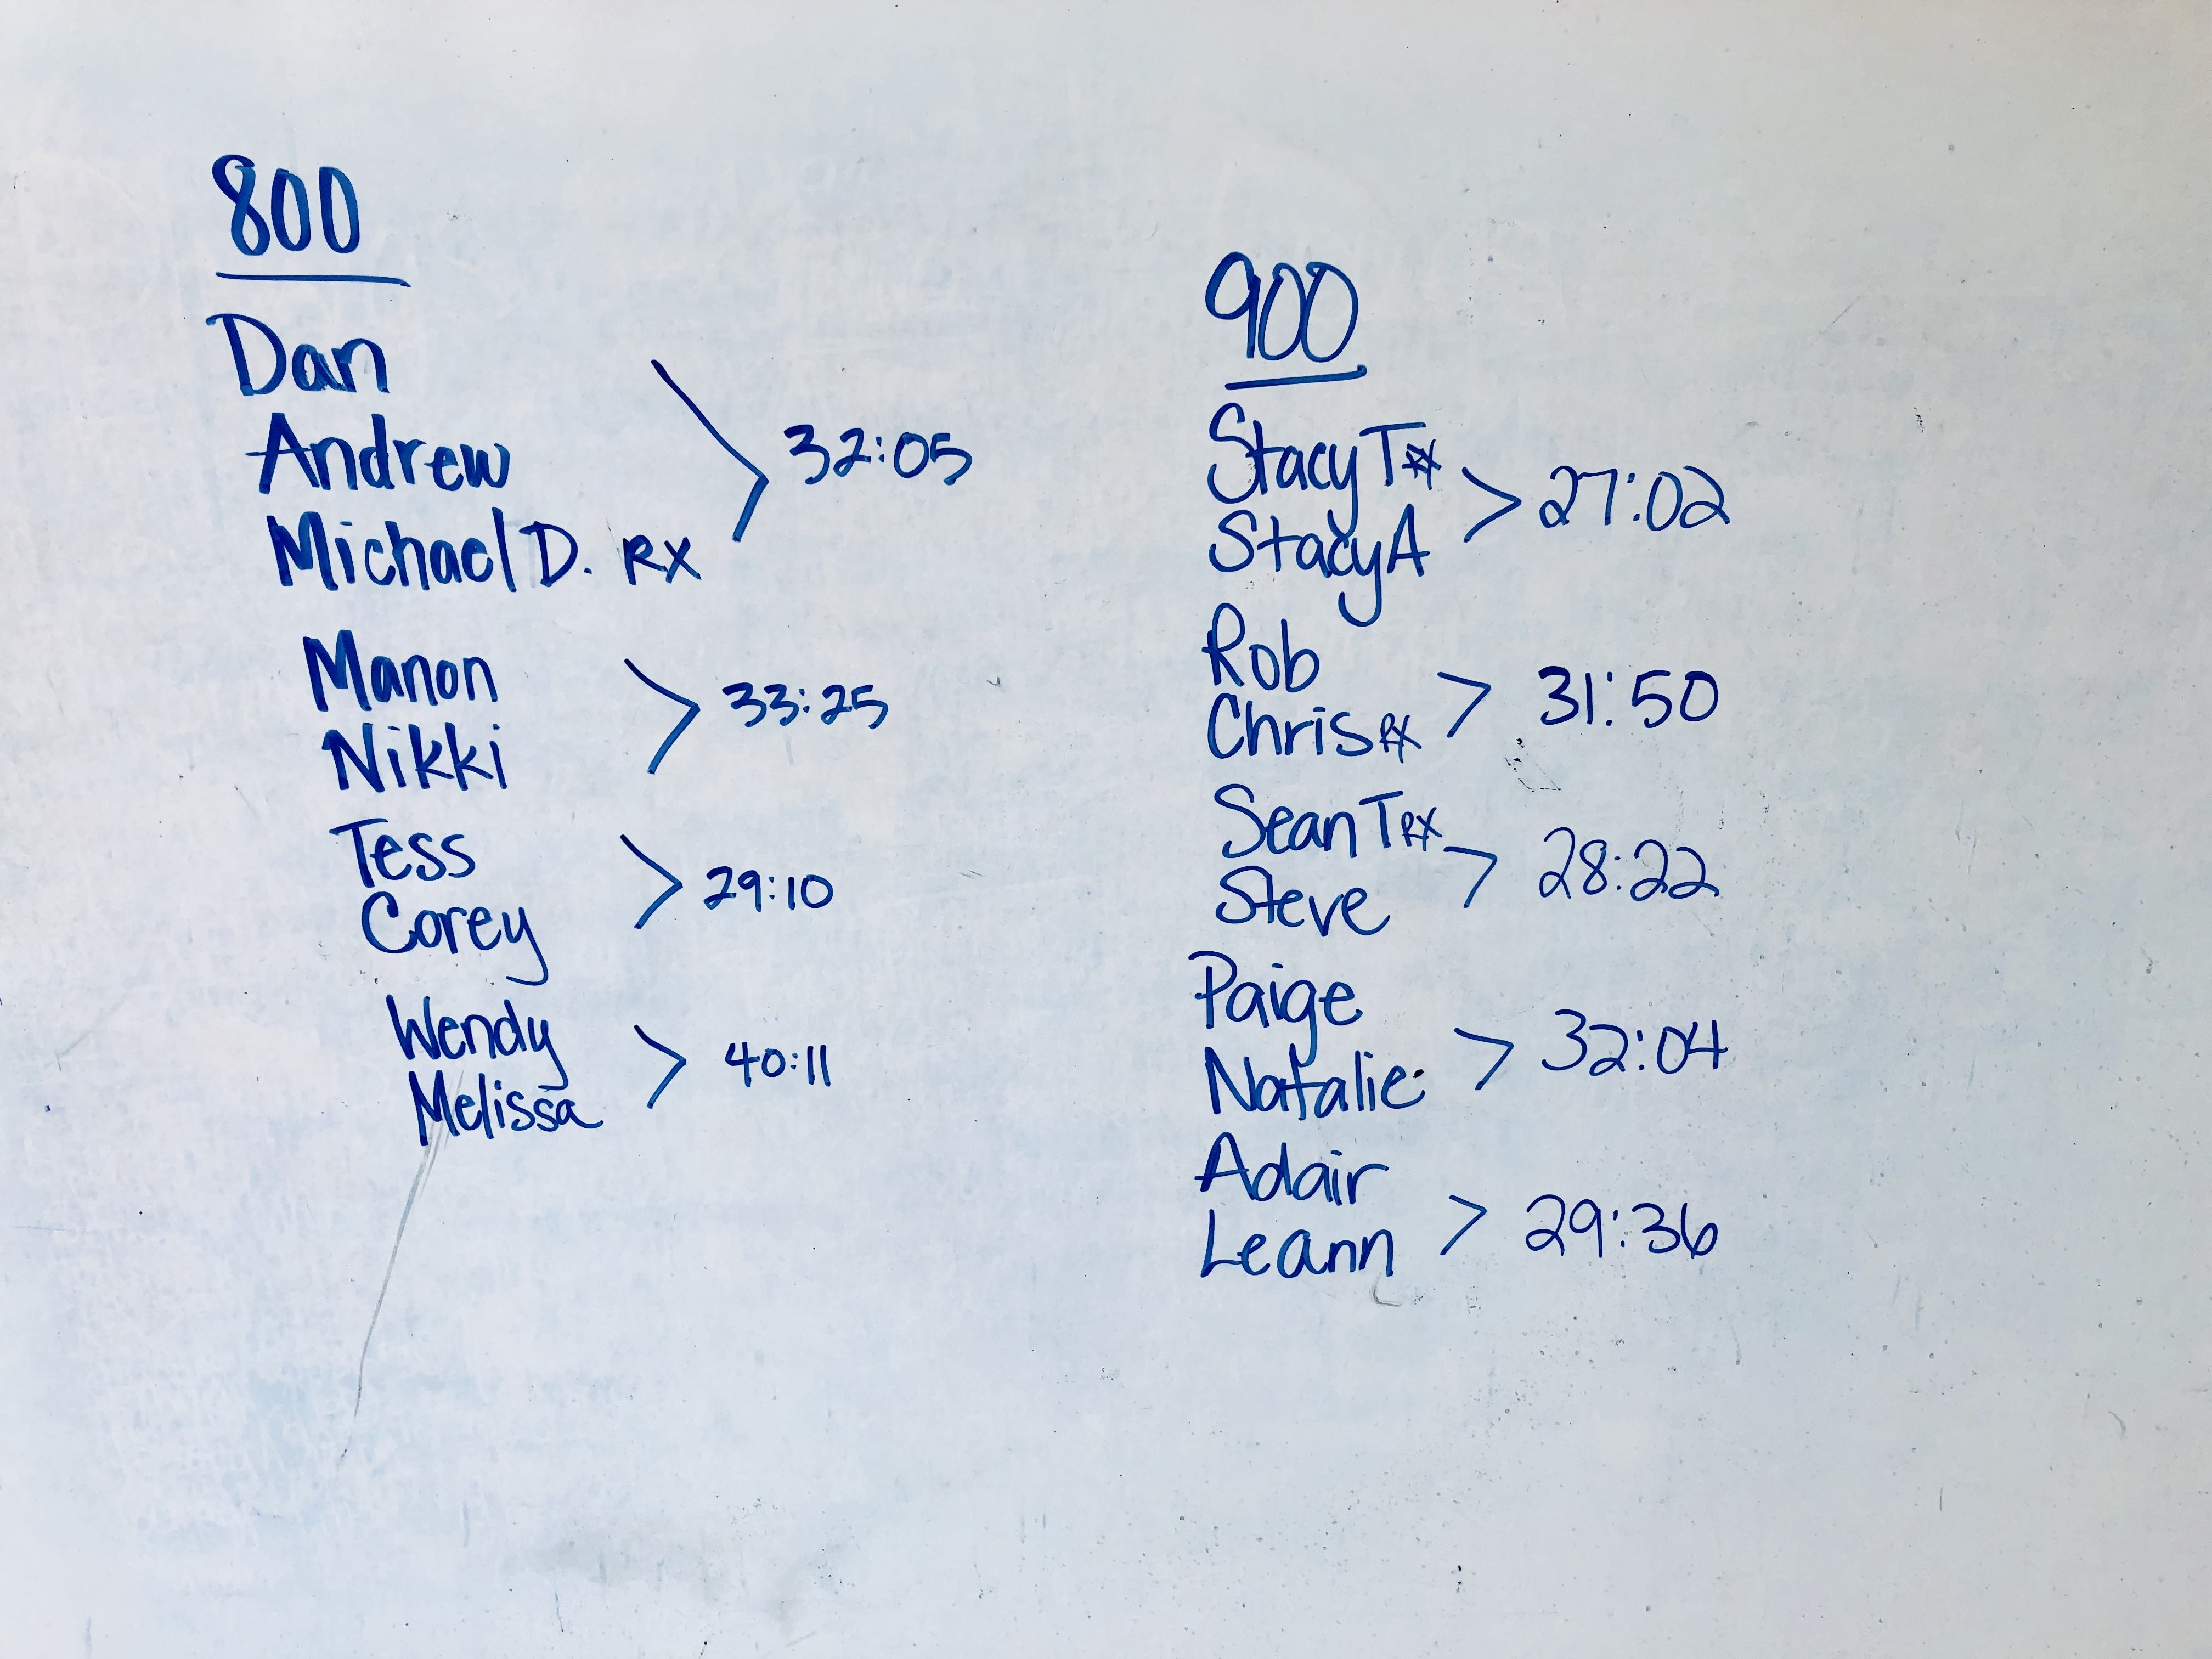 800
Dan
Andrew
Michael D. RX
> 32:05
Manon
Nikki
> 33:25
Tess
Corey
> 29:10
Wendy
Melissa
> 40:11
900
Stacy T RX
Stacy A
> 27:02
Rob
Chris RX
> 31:50
Sean T RX
Steve
> 28:22
Paige
Natalie
> 32:04
Adair
Leann
> 29:36